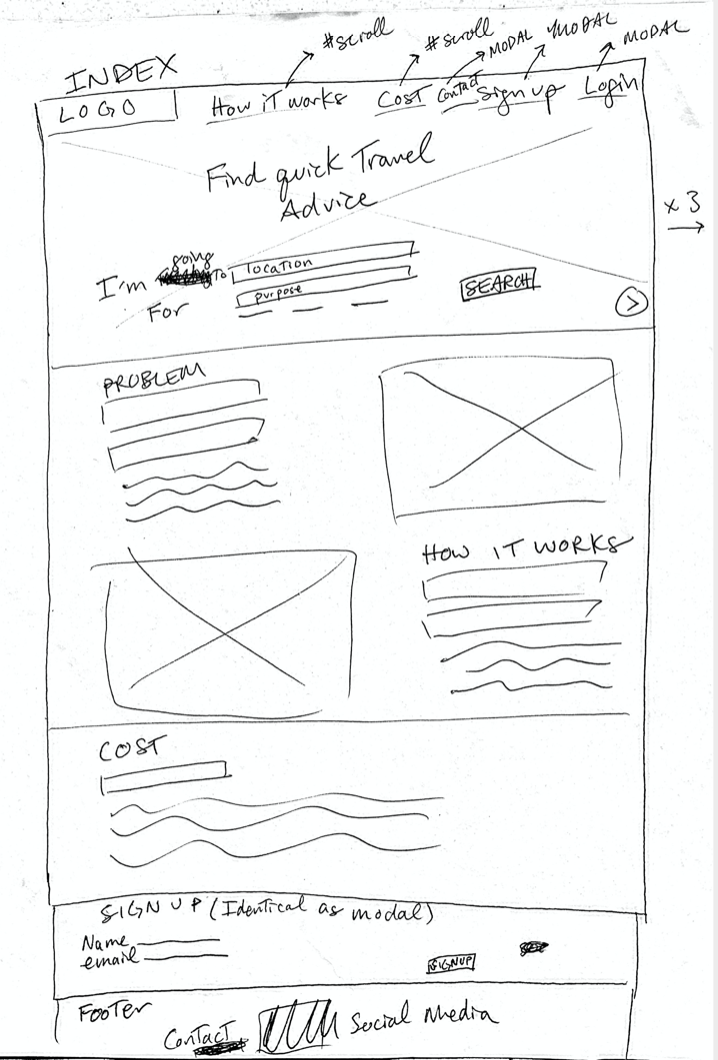 #scroll #scroll MODAL MODAL MODAL
INDEX
LOGO How iT works COST Contact Sign up Login
Find quick Travel
Advice
x 3
I'm going To location
For purpose
SEARCH
>
PROBLEM
HOW IT WORKS
COST
SIGN UP (Identical as modal)
Name
email
SIGNUP
Footer
Contact Social Media